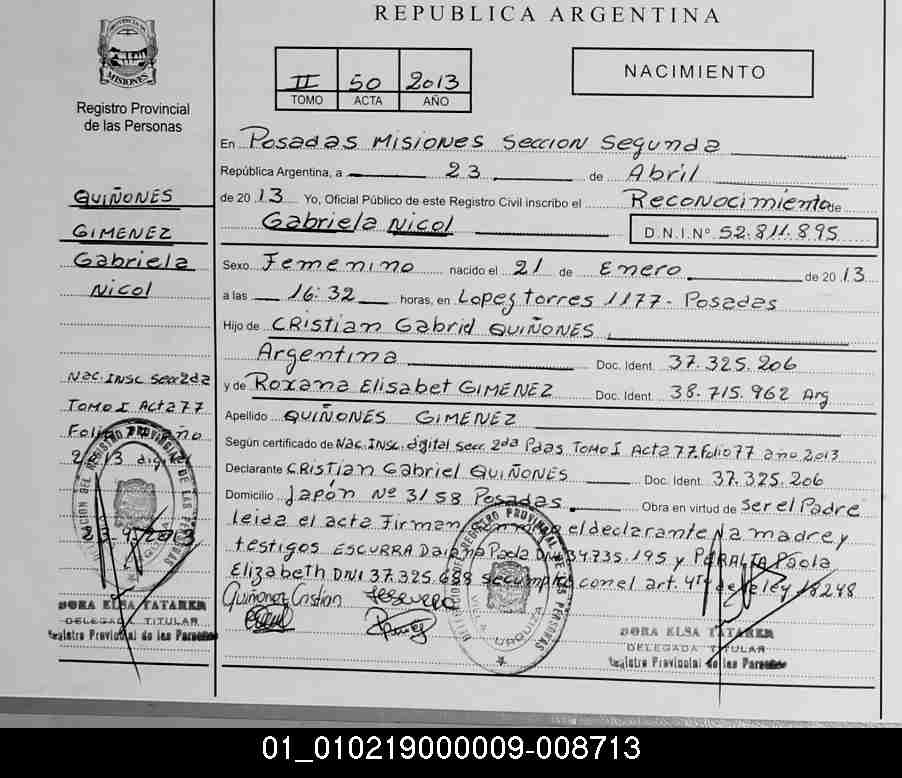 REPUBLICA ARGENTINA
PROVINCIA DE
MISIONES
Registro Provincial
de las Personas
II 50 2013
TOMO ACTA AÑO
NACIMIENTO
QUIÑONES
GIMENEZ
Gabriela
Nicol
Nac. INSC secc 2da
TOMO I Acta 77
En Posadas Misiones Seccion Segunda
República Argentina, a 23 de Abril
de 2013 Yo, Oficial Público de este Registro Civil inscribo el Reconocimiento de
Gabriela Nicol D.N.I.Nº 52.811.895
Sexo Femenino nacido el 21 de Enero de 2013
a las 16:32 horas, en Lopez torres 1177 - Posadas
Hijo de CRistian Gabriel QUIÑONES
Argentina Doc. Ident. 37.325.206
y de Roxana Elisabet GIMENEZ Doc. Ident. 38.715.962 Arg
Apellido QUIÑONES GIMENEZ
Según certificado de Nac. INSC. digital secc. 2da Pdas TOMO I Acta 77. Folio 77 año 2013
Declarante CRistian Gabriel QUIÑONES Doc. Ident. 37.325.206
Domicilio Japón Nº 3158 Posadas Obra en virtud de ser el Padre
leida el acta Firman el declarante la madre y
testigos ESCURRA Daiana Paola DNI 34.735.195 y PERALTA Paola
Elizabeth DNI 37.325.688 se cumple con el art. de ley 18248
Quiñones Cristian
DORA ELSA TATAREN
DELEGADA TITULAR
Registro Provincial de las Personas
DORA ELSA TATAREN
DELEGADA TITULAR
Registro Provincial de las Personas
01_010219000009-008713